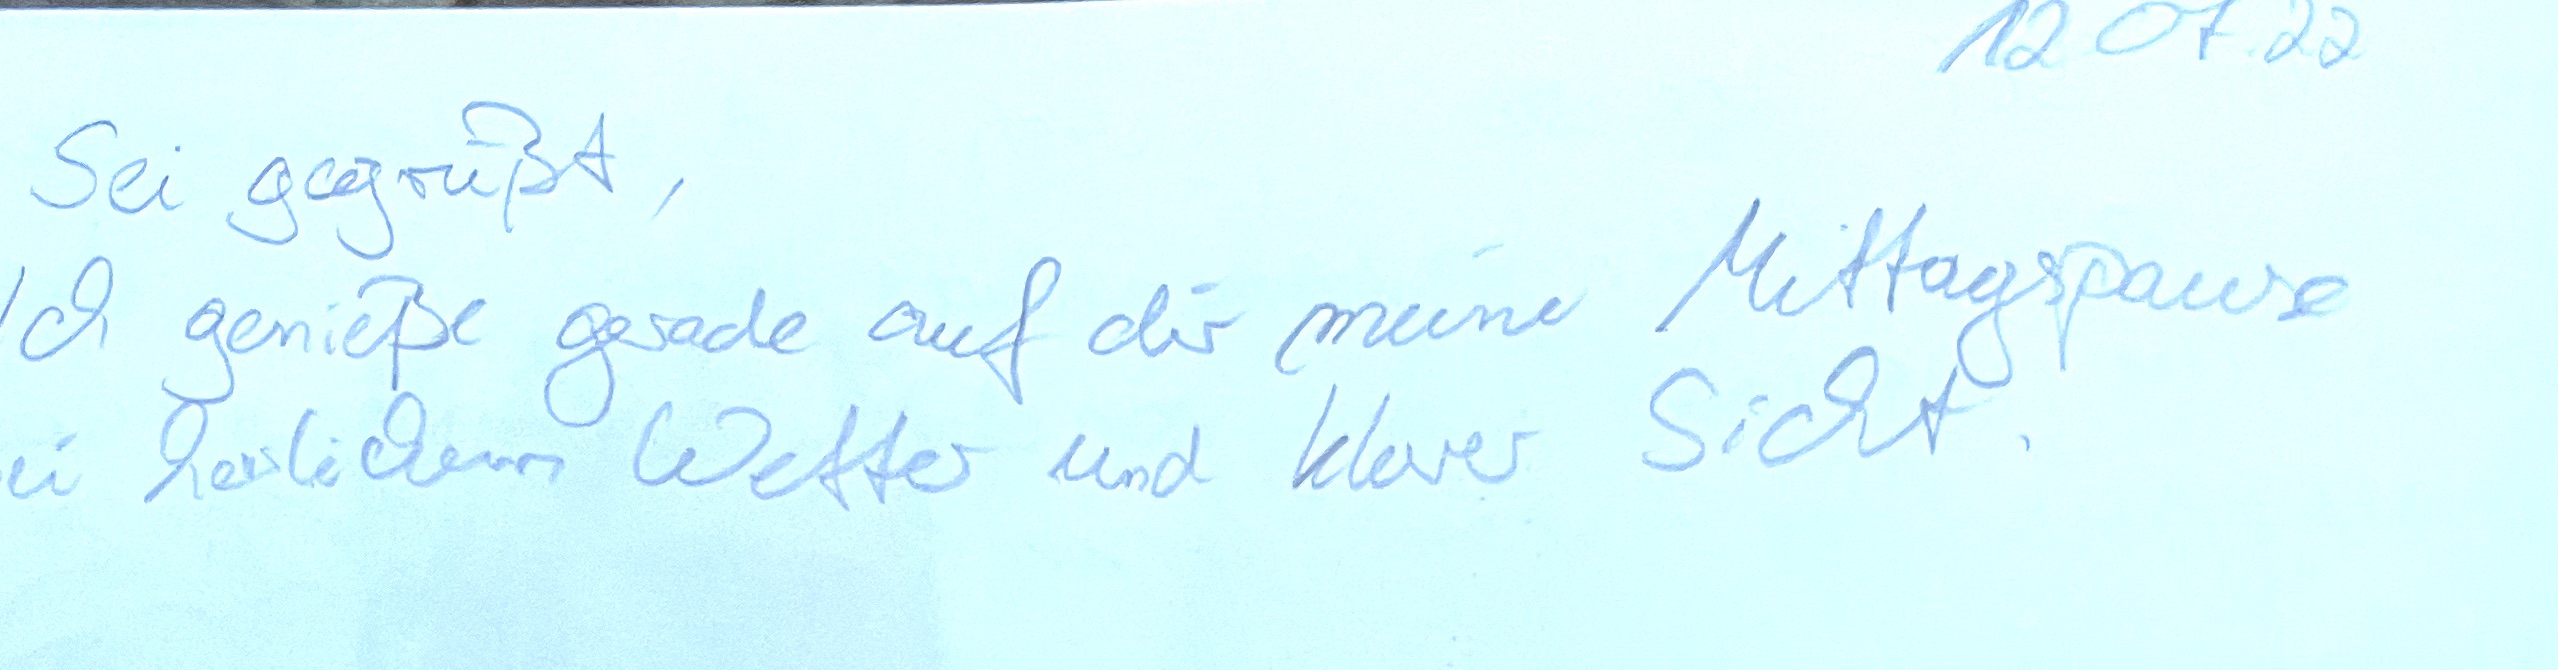 12 07.22
Sei gegrüßt,
Ich genieße gerade auf dir meine Mittagspause
ei herlichem Wetter und klarer Sicht.